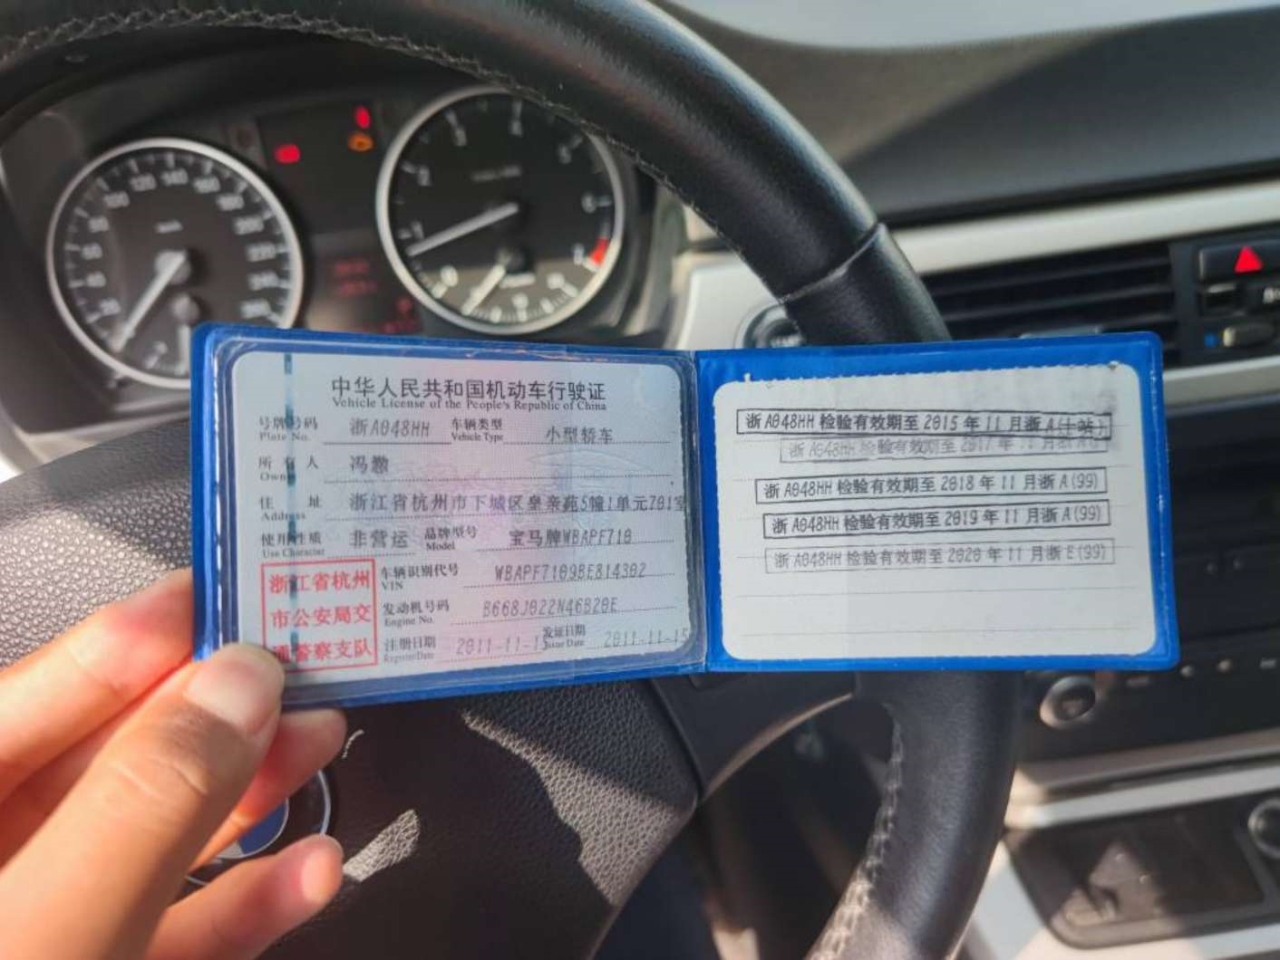 中华人民共和国机动车行驶证
Vehicle License of the People's Republic of China
号牌号码 浙A048HH 车辆类型 小型轿车
Plate No. Vehicle Type
所有人 冯
Owner
住址 浙江省杭州市下城区皇亲苑5幢1单元701室
Address
使用性质 非营运 品牌型号 宝马牌WBAPF710
Use Character Model
浙江省杭州
市公安局交
通警察支队
车辆识别代号 WBAPF7109BE814302
VIN
发动机号码 B668J022N46B20E
Engine No.
注册日期 2011-11-15 发证日期 2011-11-15
Register Date Issue Date
浙A048HH 检验有效期至 2015 年 11 月浙A
浙A048HH 检验有效期至 2017 年 11 月浙A
浙A048HH 检验有效期至 2018 年 11 月浙A(99)
浙A048HH 检验有效期至 2019 年 11 月浙A(99)
浙A048HH 检验有效期至 2020 年 11 月浙E(99)